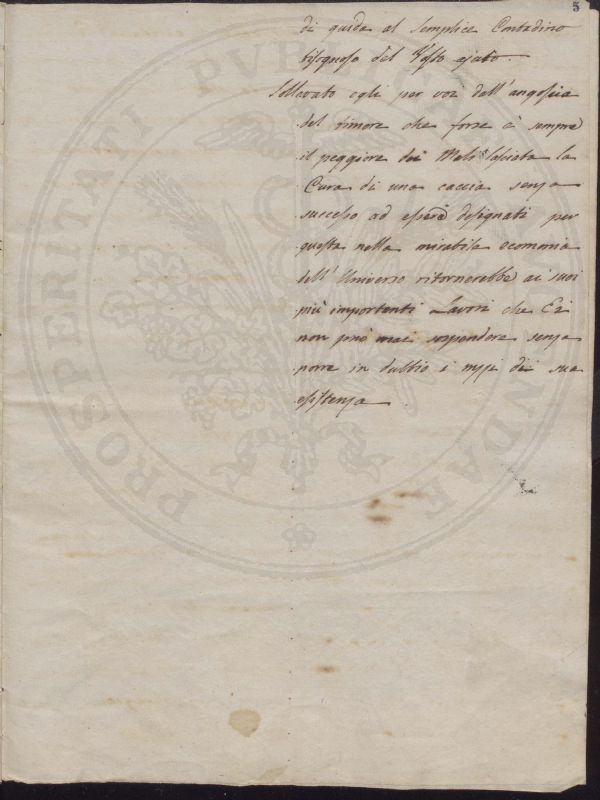 5
di guida al semplice Contadino
bisognoso del Vosto ajuto.
Sollevato egli per voi dall'angoscia
del timore che forse è sempre
il peggiore dei Mali lasciata la
Cura di una caccia senza
successo ad esseri designati per
questa nella mirabile economia
dell'Universo ritornerebbe ai suoi
più importanti Lavori che Ei
non può mai sospendere senza
porre in dubbio i mezzi di sua
esistenza.
PROSPERITATI PVBLICAE AVGENDAE